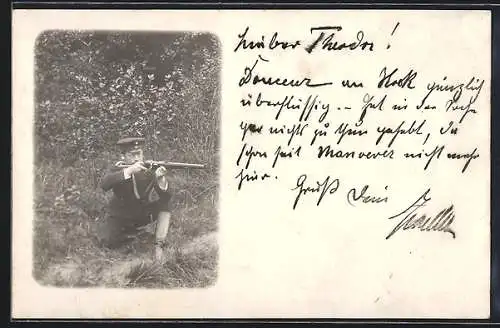 Lieber Theodor!
Douceur an Hock gänzlich
überflüssig. – Hat in der Sache
gar nichts zu thun gehabt, da
schon seit Manoever nicht mehr
hier. Gruß Dein